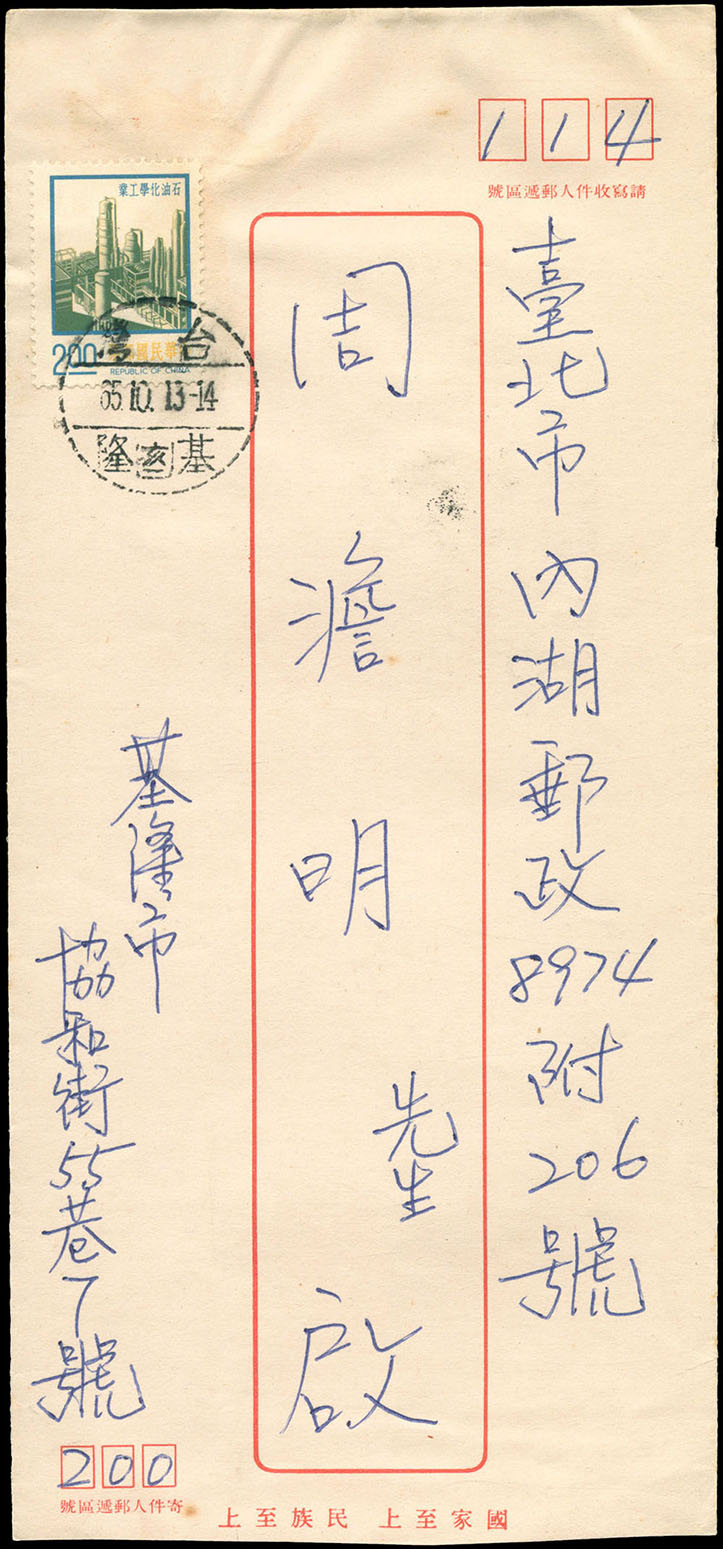 114
請寫收件人郵遞區號
臺北市內湖郵政8974附206號
周澹明先生啟
石油化學工業
中華民國郵票
2.00
REPUBLIC OF CHINA
台灣
65.10.13-14
基(亥)隆
基隆市
協和街55巷7號
200
寄件人郵遞區號
國家至上 民族至上